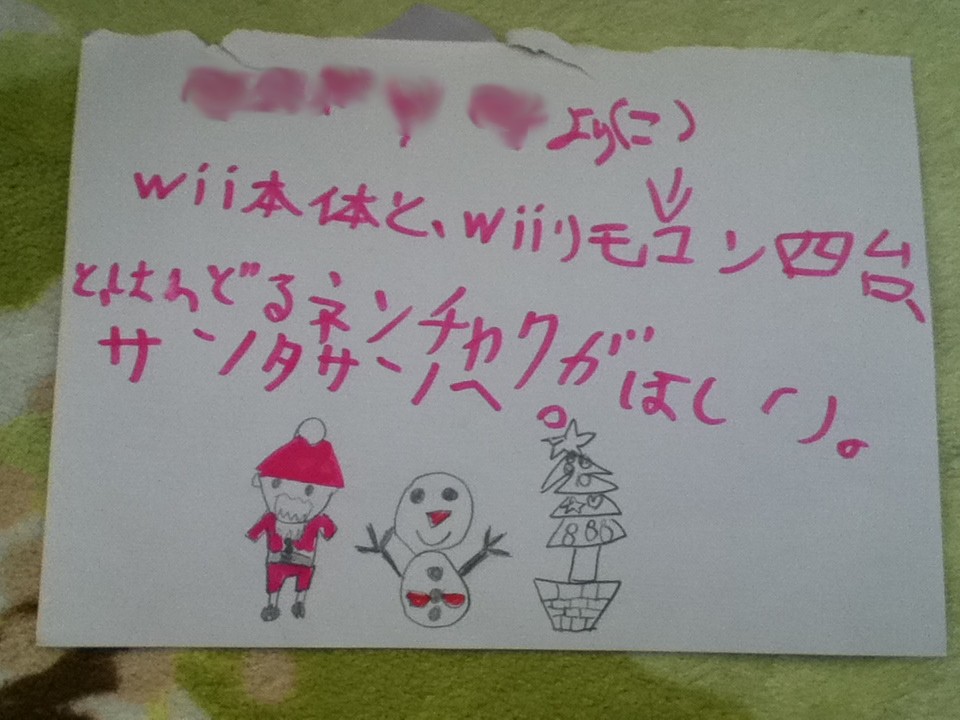 より(こ)
wii本体と、wiiリモコン四台、
とはんどるネンチャクがほしい。
サンタサンへ。